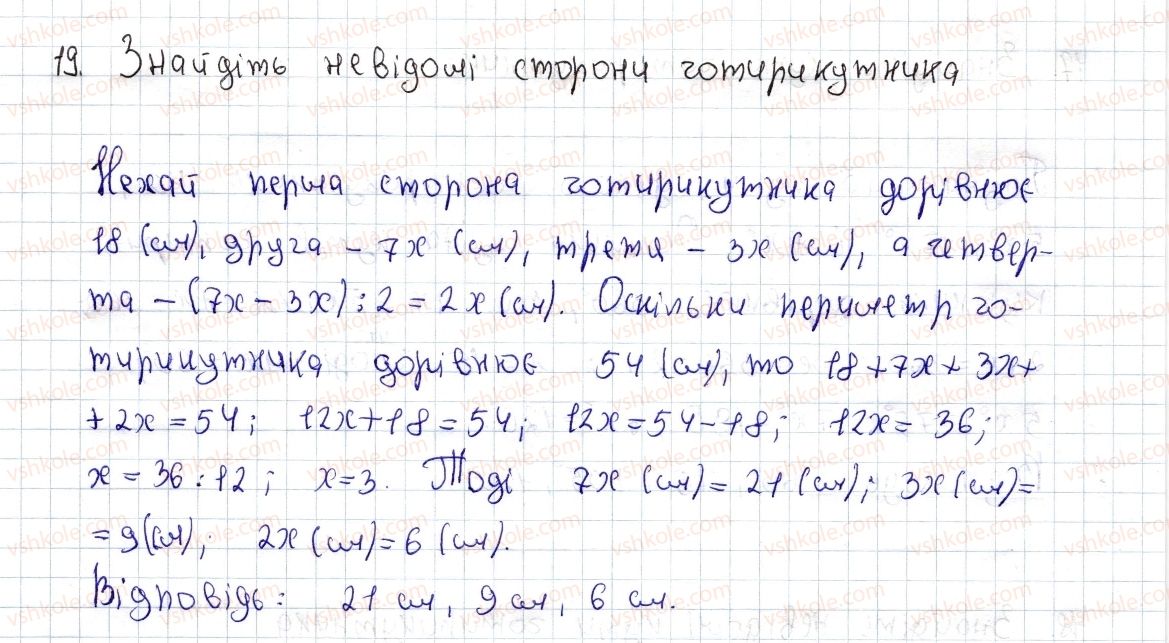 19. Знайдіть невідомі сторони чотирикутника
Нехай перша сторона чотирикутника дорівнює
18 (см), друга – 7x (см), третя – 3x (см), а четвер-
та – (7x – 3x) : 2 = 2x (см). Оскільки периметр чо-
тирикутника дорівнює 54 (см), то 18 + 7x + 3x +
+ 2x = 54; 12x + 18 = 54; 12x = 54 – 18; 12x = 36;
x = 36 : 12; x = 3. Тоді 7x (см) = 21 (см); 3x (см) =
= 9 (см); 2x (см) = 6 (см).
Відповідь: 21 см, 9 см, 6 см.